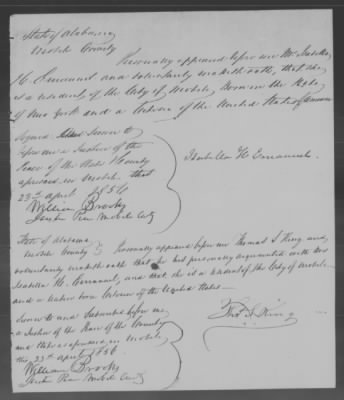 State of Alabama
Mobile County
Personally appeared before me Mrs Isabella
H. Emanuel and voluntarily maketh oath, that she
is a resident of the City of Mobile, born in the State
of New York and a Citizen of the United States of America
Signed Sworn to
before me a Justice of the
Peace of the State & County
aforesaid, in Mobile this
23rd April 1856
William Brooks
Justice Peace Mobile Cty
Isabella H Emanuel
State of Alabama
Mobile County
Personally appeared before me Thomas S King and
voluntarily maketh oath that he is personally acquainted with Mrs
Isabella H. Emanuel, and that she is a resident of the City of Mobile
and a native born Citizen of the United States
Sworn to and Subscribed before me
a Justice of the Peace of the County
and State aforesaid, in Mobile
this 23rd April 1856
William Brooks
Justice Peace Mobile Cty
Tho. S. King